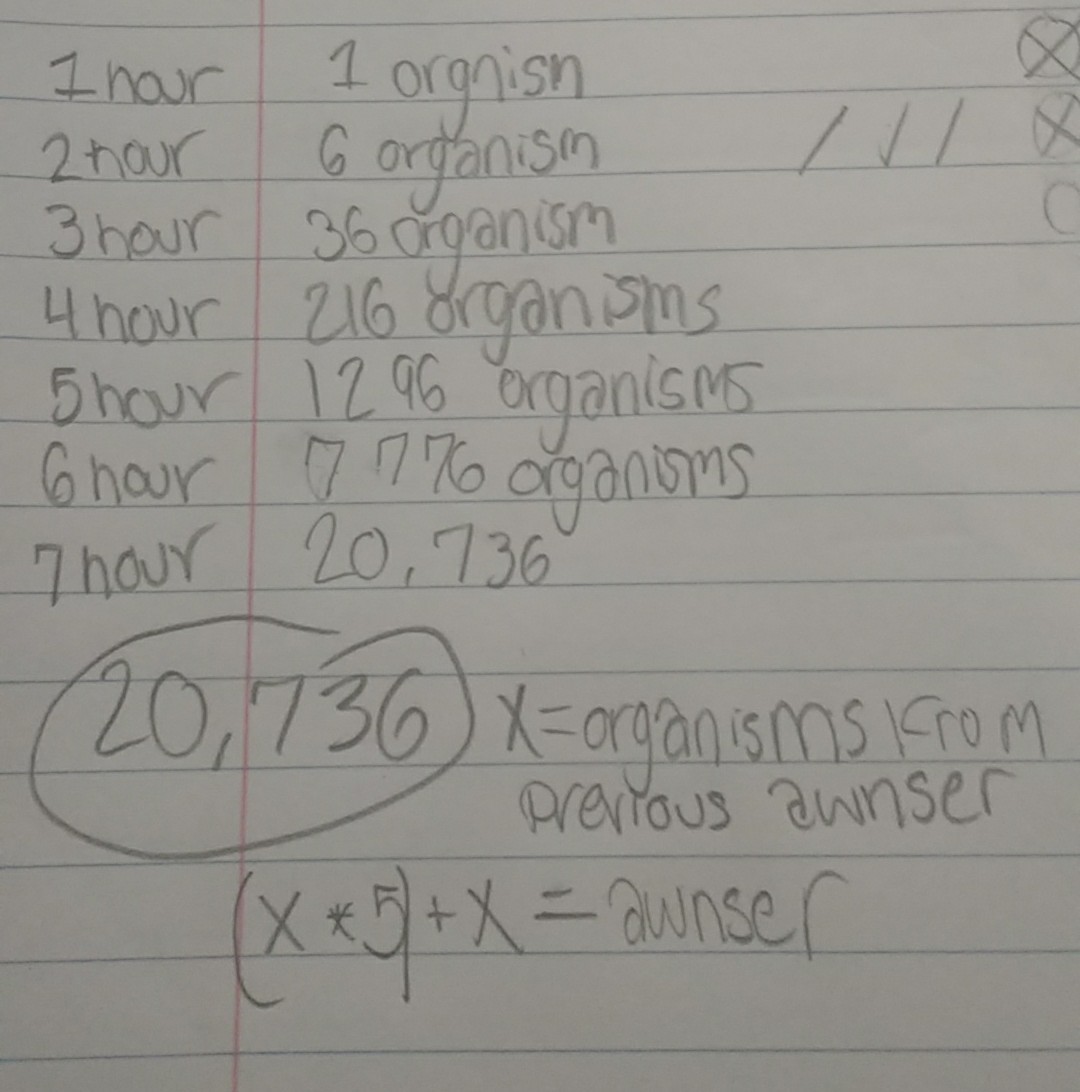 1 hour 1 orgnisn
2 hour 6 organism
3 hour 36 organism
4 hour 216 organisms
5 hour 1296 organisms
6 hour 7776 organisms
7 hour 20,736
20,736 X=organisms from
previous awnser
(X*5)+X=awnser